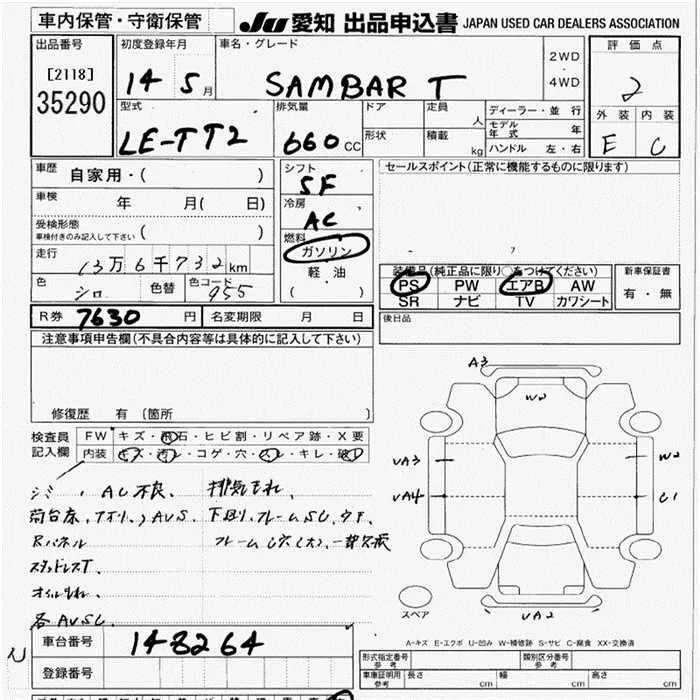 車内保管・守衛保管 JU 愛知 出品申込書 JAPAN USED CAR DEALERS ASSOCIATION
出品番号 初度登録年月 車名・グレード 評価点
[2118] 14 5月 SAMBAR T 2WD・4WD 2
35290
型式 排気量 ドア 定員 人 ディーラー・並行 外装 内装
LE-TT2 660 CC 形状 積載 kg モデル年式 年 E C
ハンドル 左・右
車歴 自家用・( ) シフト 5F セールスポイント(正常に機能するものに限ります)
車検 年 月( 日) 冷房 AC
受検形態 ( )
車検付きのみ記入して下さい
燃料
走行 13万6千732km ガソリン 装備品(純正品に限り○をつけてください) 新車保証書
色 シロ 色替 色コード 955 軽油 PS PW エアB AW 有・無
( ) SR ナビ TV カワシート
R券 7630円 名変期限 月 日 後日品
注意事項申告欄(不具合内容等は具体的に記入して下さい)
修復歴 有 [箇所 ]
検査員記入欄 FW キズ・飛石・ヒビ割・リペア跡・X要
内装 キズ・汚レ・コゲ・穴・スレ・キレ・破レ
シミ、AC不良、排気もれ、
荷台床、アオリ、AVS. 下廻り、フレームSC,
Rパネル フレームC穴(大)、一部欠損
スタッドレスT.
オイルもれ.
各AVSC.
A3
W2
VA3 W2
VA4 C1
スペア VA2
A-キズ E-エクボ U-凹み W-補修跡 S-サビ C-腐食 XX-交換済
車台番号 148264
登録番号
形式指定番号 参考 類別区分番号 参考
車庫証明用 参考 長さ cm 幅 cm 高さ cm